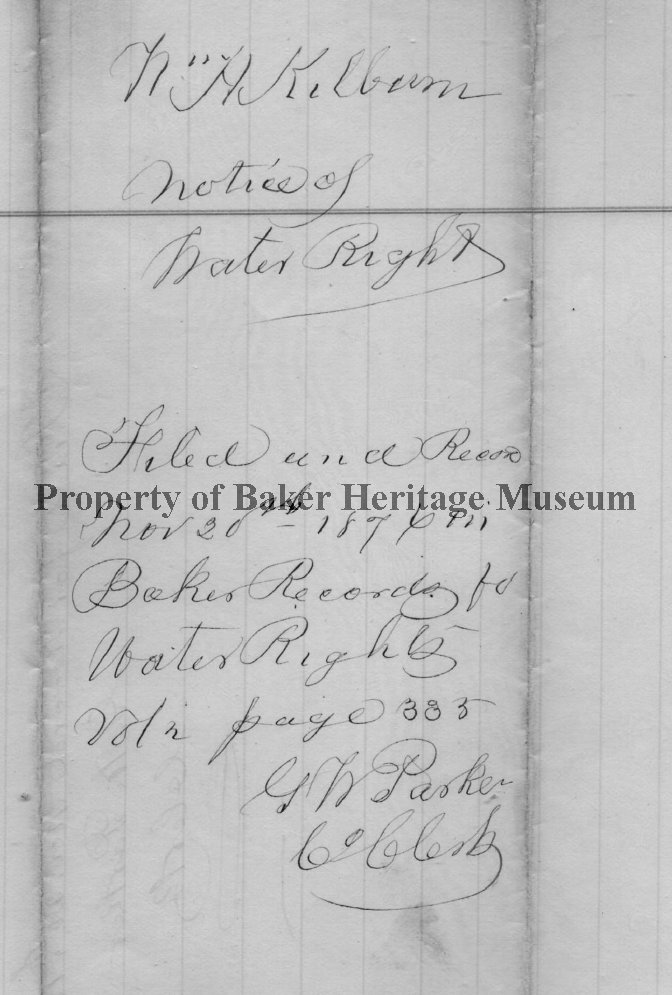 Wm H Kilburn
Notice of
Water Right
Filed and Record
Property of Baker Heritage Museum
Nov 20th 1876 in
Baker Records fo
Water Rights
Vol 2 page 335
G W Parker
Co Clerk